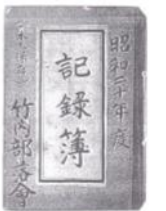 昭和三十年度
記録簿
竹内部落會